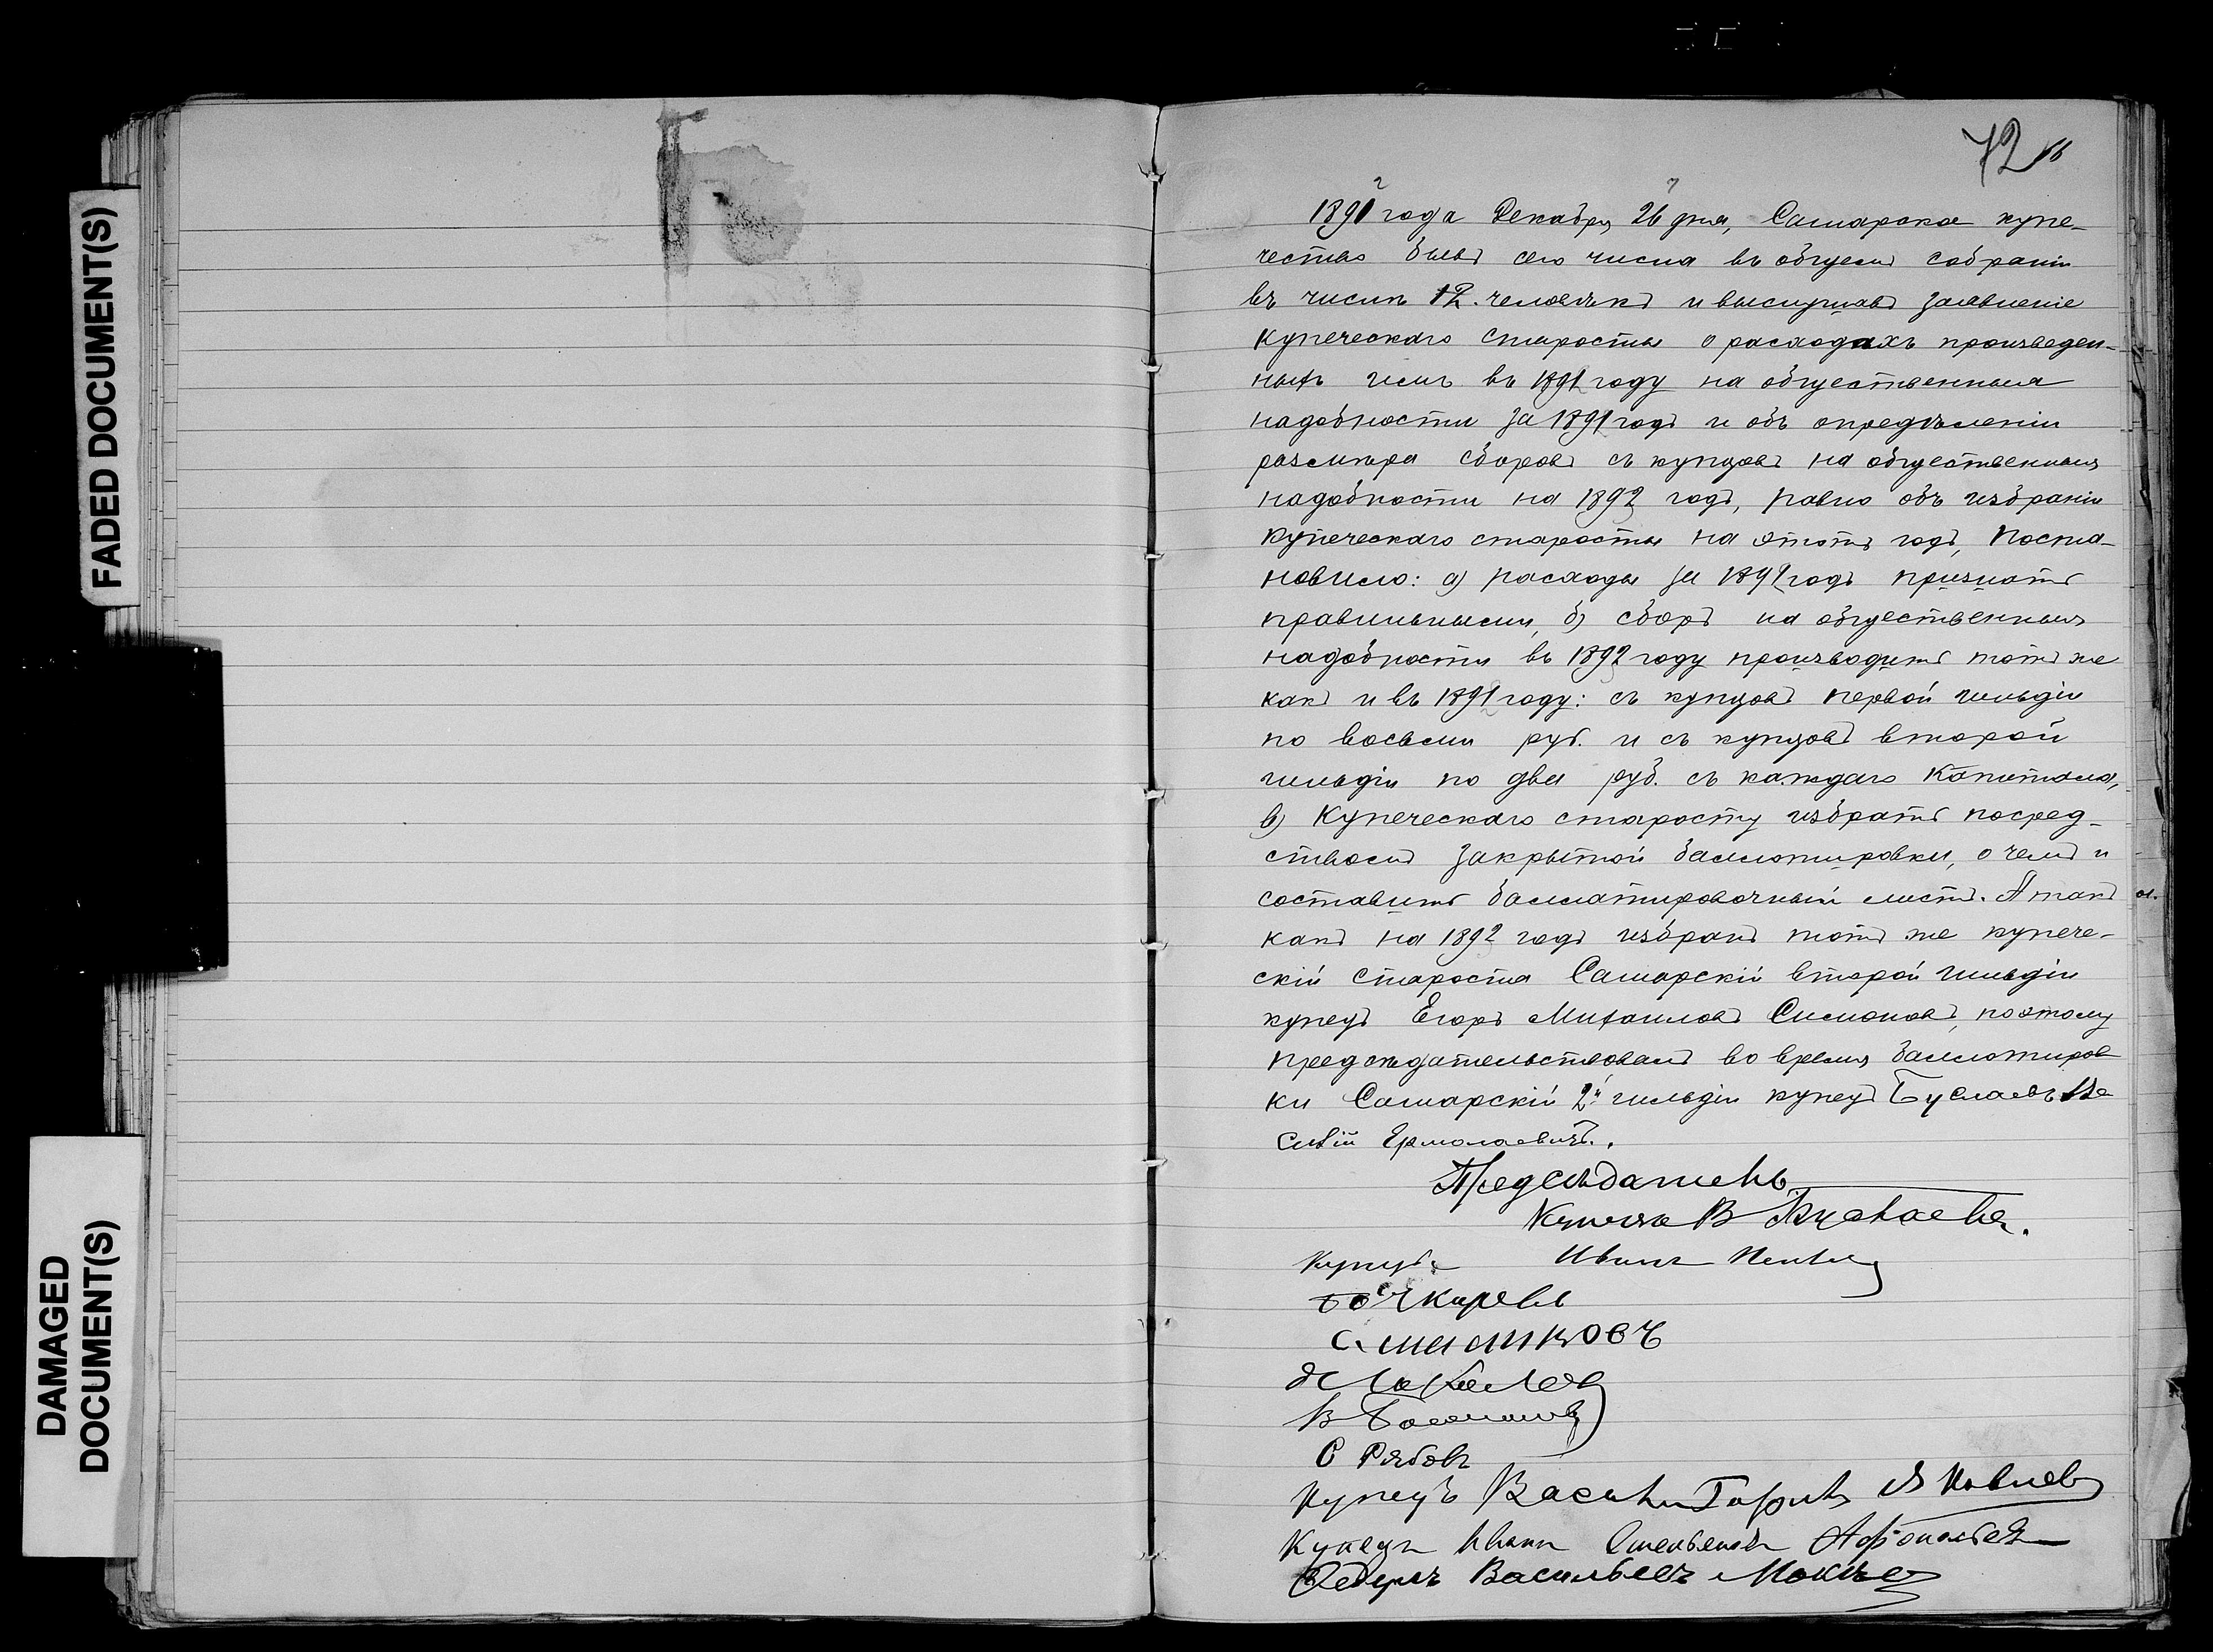 FADED DOCUMENT(S)
DAMAGED
DOCUMENT(S)
72
1891 года Декабря 26 дня, Самарское купе-
чество бывъ сего числа въ общемъ собраніи
въ числѣ 12. человѣкъ и выслушавъ заявленіе
Купеческаго Старосты о расходахъ произведен-
ныхъ имъ въ 1891 году на общественныя
надобности за 1891 годъ и объ опредѣленіи
размѣра сборовъ съ купцовъ на общественныя
надобности на 1892 годъ, равно объ избраніи
Купеческаго старосты на этотъ годъ, Поста-
новило: а) расходы за 1891 годъ признать
правильными, б) сборъ на общественныя
надобности въ 1892 году производить тотъ же
какъ и въ 1891 году: съ купцовъ первой гильдіи
по восьми руб. и съ купцовъ второй
гильдіи по два руб. съ каждаго Капитала,
в) Купеческаго старосту избрать посред-
ствомъ закрытой баллотировки, о чемъ и
составить баллатировочный листъ. А такъ
какъ на 1892 годъ избранъ тотъ же купече-
скій Староста Самарскій второй гильдіи
купецъ Егоръ Михаиловъ Симоновъ, поэтому
предсѣдательствовалъ во время баллотиров
ки Самарскій 2й гильдіи купецъ Буслаевъ Ва
силій Ермолаевичъ.
Предсѣдатель
В Буслаевъ.
Купецъ Иванъ
Бочкаревъ
С.
В
С Рябовъ
Купецъ Василій Яковлев
Купецъ Иванъ
Федоръ Васильевъ Мокѣев